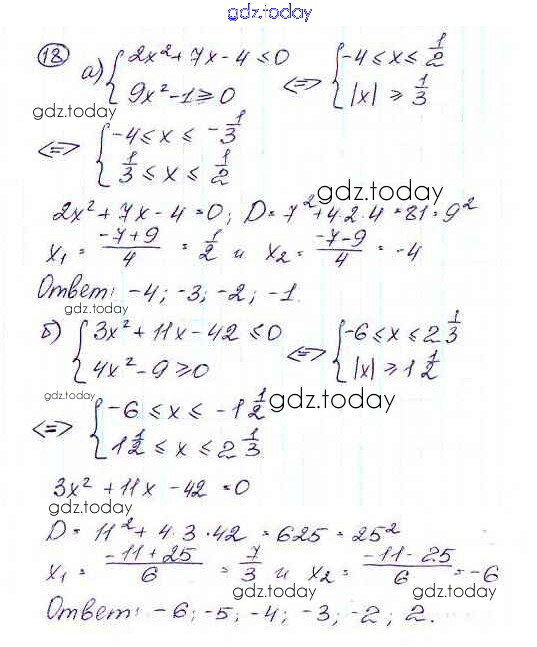 gdz.today
18 а) { 2x² + 7x - 4 ≤ 0 <=> { -4 ≤ x ≤ 1/2
9x² - 1 ≥ 0 |x| ≥ 1/3
gdz.today
<=> { -4 ≤ x ≤ -1/3
1/3 ≤ x ≤ 1/2
gdz.today
2x² + 7x - 4 = 0; D = 7² + 4·2·4 = 81 = 9²
x₁ = (-7+9)/4 = 1/2 и x₂ = (-7-9)/4 = -4
Ответ: -4; -3; -2; -1.
gdz.today
б) { 3x² + 11x - 42 ≤ 0 <=> { -6 ≤ x ≤ 2 1/3
4x² - 9 ≥ 0 |x| ≥ 1 1/2
gdz.today
gdz.today
<=> { -6 ≤ x ≤ -1 1/2
1 1/2 ≤ x ≤ 2 1/3
3x² + 11x - 42 = 0
gdz.today
D = 11² + 4·3·42 = 625 = 25²
x₁ = (-11+25)/6 = 7/3 и x₂ = (-11-25)/6 = -6
gdz.today
Ответ: -6; -5; -4; -3; -2; 2.